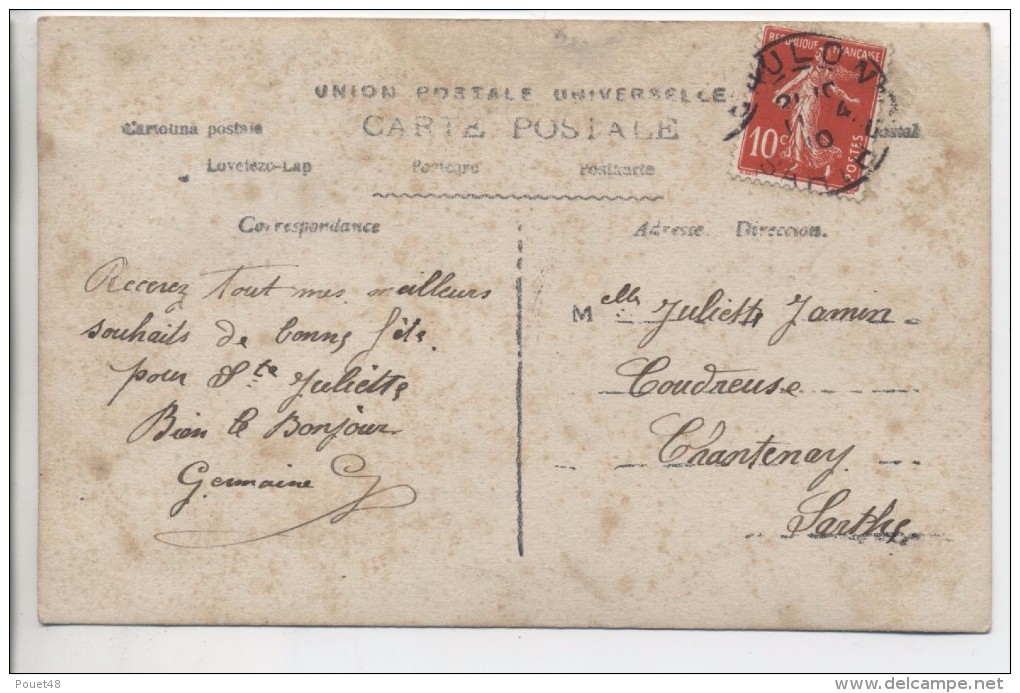 UNION POSTALE UNIVERSELLE
CARTE POSTALE
Cartolina postale
Levelezo-Lap
Postcard
Postkaarte
REPUBLIQUE FRANÇAISE
10c
POSTES
TOULON
VAR
Correspondance
Adresse. Direccion.
Recevez tout mes meilleurs
souhaits de bonne fête
pour Ste Juliette
Bien le Bonjour
Germaine
Melle Juliette Jamin
Coudreuse
Chantenay
Sarthe
Pouet48
www.delcampe.net